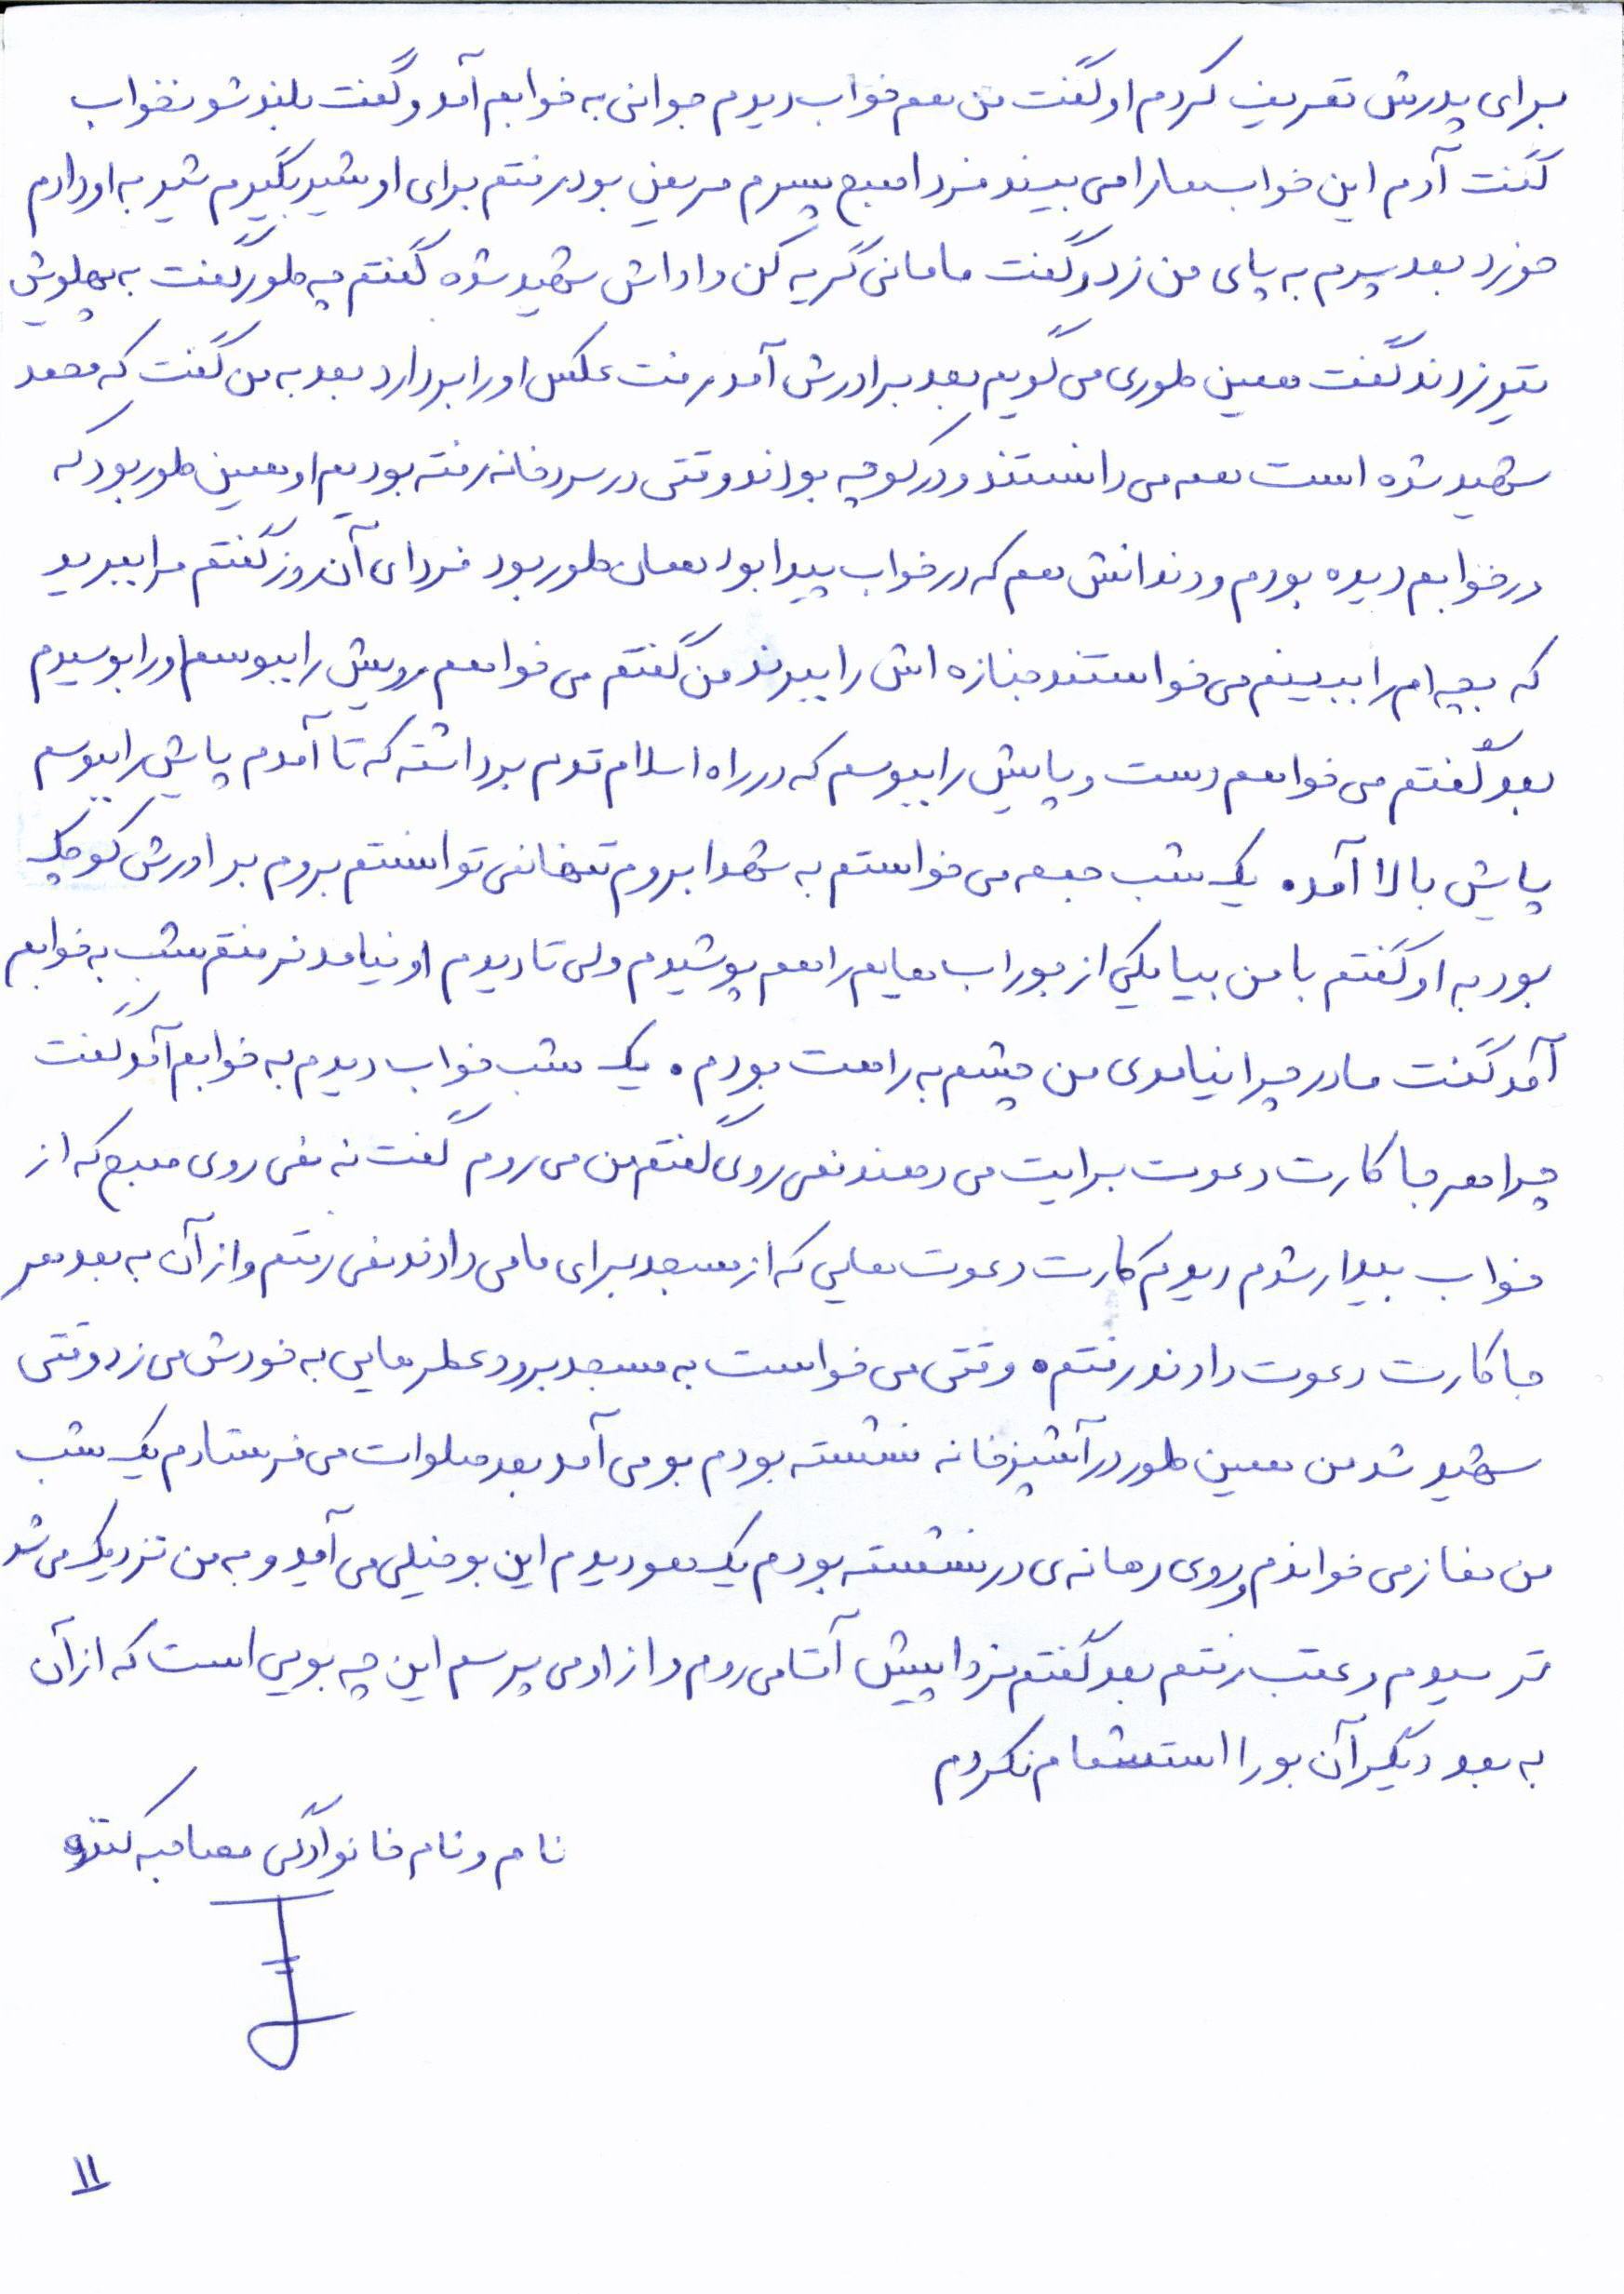 برای پدرش تعریف کردم او گفت من هم خواب دیدم جوانی به خوابم آمد و گفت بلند شو نخواب
گفت آدم این خواب ها را می بیند فردا صبح پسرم مریض بود رفتم برای او شیر بگیرم شیر به او دادم
خورد بعد پسرم به پای من زد و گفت مامانی گریه کن داداش شهید شده گفتم چه طور گفت به پهلویش
تیر زدند گفت همین طوری می گویم بعد برادرش آمد رفت عکس او را بردارد بعد به من گفت که محمد
شهید شده است همه می دانستند و در کوچه بودند وقتی در سردخانه رفته بودیم او همین طور بود که
در خوابم دیده بودم و دندانش هم که در خواب پیدا بود همان طور بود فردای آن روز گفتم مرا ببرید
که بچه ام را ببینم می خواستند جنازه اش را ببرند من گفتم می خواهم رویش را ببوسم او را بوسیدم
بعد گفتم می خواهم دست و پایش را ببوسم که در راه اسلام قدم برداشته که تا آمدم پایش را ببوسم
پایش بالا آمد. یک شب جمعه می خواستم به شهدا بروم تنها نمی توانستم بروم برادرش کوچک
بود به او گفتم با من بیا یکی از جوراب هایم را هم پوشیدم ولی تا دیدم او نیامد نرفتم شب به خوابم
آمد گفت مادر چرا نیامدی من چشم به راهت بودم. یک شب خواب دیدم به خوابم آمد گفت
چرا هر جا کارت دعوت برایت می دهند نمی روی گفتم من می روم گفت نه نمی روی صبح که از
خواب بیدار شدم دیدم کارت دعوت هایی که از مسجد برای ما می دادند نمی رفتم و از آن به بعد هر
جا کارت دعوت دادند رفتم. وقتی می خواست به مسجد برود عطرهایی به خودش می زد وقتی
شهید شد من همین طور در آشپزخانه نشسته بودم بو می آمد بعد صلوات می فرستادم یک شب
من نماز می خواندم و روی دهانه ی در نشسته بودم یک هو دیدم این بو خیلی می آید و به من نزدیک می شد
ترسیدم و عقب رفتم بعد گفتم فردا پیش آقا می روم و از او می پرسم این چه بویی است که از آن
به بعد دیگر آن بو را استشمام نکردم
نام و نام خانوادگی مصاحبه کننده
۱۱